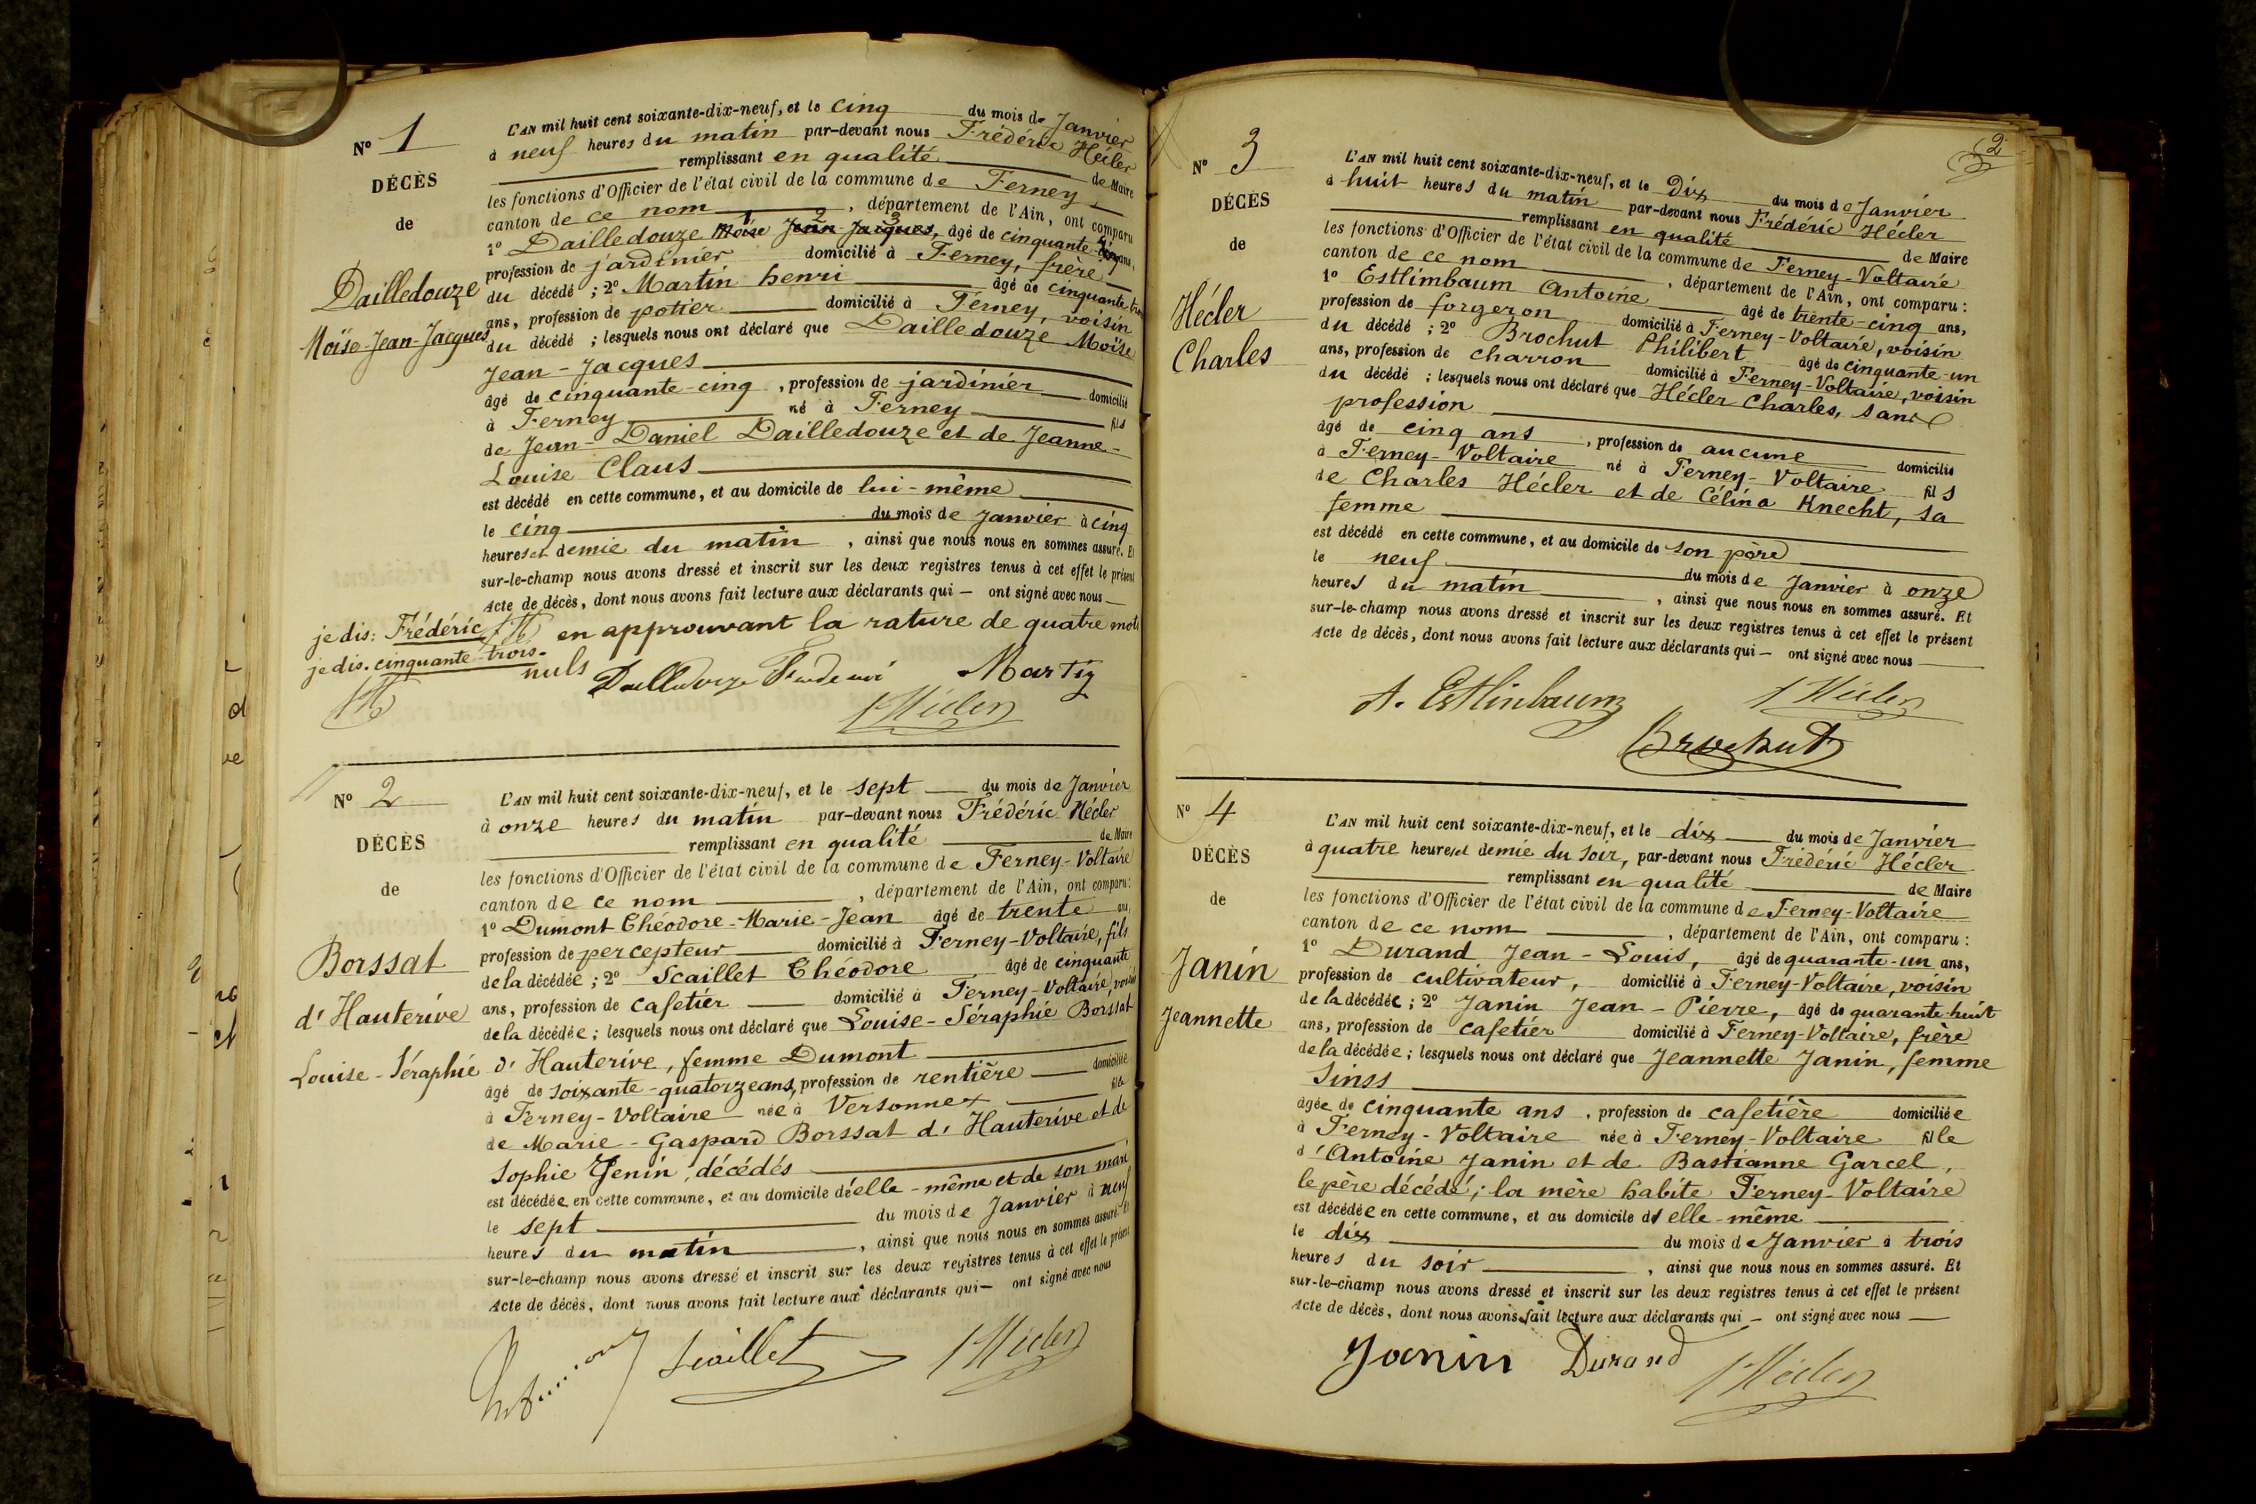 N° 1
DÉCÈS
de
Dailledouze
Moïse-Jean-Jacques
L'AN mil huit cent soixante-dix-neuf, et le cinq du mois de Janvier
à neuf heures du matin par-devant nous Frédéric Hécler
remplissant en qualité de Maire
les fonctions d'Officier de l'état civil de la commune de Ferney
canton de ce nom, département de l'Ain, ont comparu
1° Dailledouze Moïse Jean-Jacques, âgé de cinquante ans,
profession de jardinier domicilié à Ferney, frère
du décédé ; 2° Martin henri âgé de cinquante-trois
ans, profession de potier domicilié à Ferney, voisin
du décédé ; lesquels nous ont déclaré que Dailledouze Moïse
Jean-Jacques
âgé de cinquante-cinq, profession de jardinier domicilié
à Ferney né à Ferney fils
de Jean-Daniel Dailledouze et de Jeanne-
Louise Claus
est décédé en cette commune, et au domicile de lui-même
le cinq du mois de Janvier à cinq
heures et demie du matin, ainsi que nous nous en sommes assuré. Et
sur-le-champ nous avons dressé et inscrit sur les deux registres tenus à cet effet le présent
Acte de décès, dont nous avons fait lecture aux déclarants qui — ont signé avec nous
je dis: Frédéric FH en approuvant la rature de quatre mots
je dis. cinquante-trois. nuls
FH
Dailledouze Frederic Martin
F Hécler
N° 2
DÉCÈS
de
Borssat
d'Hauterive
Louise-Séraphie
L'AN mil huit cent soixante-dix-neuf, et le sept du mois de Janvier
à onze heures du matin par-devant nous Frédéric Hécler
remplissant en qualité de Maire
les fonctions d'Officier de l'état civil de la commune de Ferney-Voltaire
canton de ce nom, département de l'Ain, ont comparu :
1° Dumont Théodore-Marie-Jean âgé de trente ans,
profession de percepteur domicilié à Ferney-Voltaire, fils
de la décédée ; 2° Scaillet Théodore âgé de cinquante
ans, profession de cafetier domicilié à Ferney-Voltaire, voisin
de la décédée ; lesquels nous ont déclaré que Louise-Séraphie Borssat
d'Hauterive, femme Dumont
âgé de soixante-quatorze ans, profession de rentière domiciliée
à Ferney-Voltaire née à Versonnex fille
de Marie-Gaspard Borssat d'Hauterive et de
Sophie Jenin, décédés
est décédée en cette commune, et au domicile d'elle-même et de son mari
le sept du mois de Janvier à neuf
heures du matin, ainsi que nous nous en sommes assuré. Et
sur-le-champ nous avons dressé et inscrit sur les deux registres tenus à cet effet le présent
Acte de décès, dont nous avons fait lecture aux déclarants qui — ont signé avec nous
Scaillet F Hécler
2
N° 3
DÉCÈS
de
Hécler
Charles
L'AN mil huit cent soixante-dix-neuf, et le Dix du mois de Janvier
à huit heures du matin par-devant nous Frédéric Hécler
remplissant en qualité de Maire
les fonctions d'Officier de l'état civil de la commune de Ferney-Voltaire
canton de ce nom, département de l'Ain, ont comparu :
1° Estlimbaum Antoine âgé de trente-cinq ans,
profession de forgeron domicilié à Ferney-Voltaire, voisin
du décédé ; 2° Brochut Philibert âgé de cinquante-un
ans, profession de charron domicilié à Ferney-Voltaire, voisin
du décédé ; lesquels nous ont déclaré que Hécler Charles, sans
profession
âgé de cinq ans, profession de aucune domicilié
à Ferney-Voltaire né à Ferney-Voltaire fils
de Charles Hécler et de Célina Knecht, sa
femme
est décédé en cette commune, et au domicile de son père
le neuf du mois de Janvier à onze
heures du matin, ainsi que nous nous en sommes assuré. Et
sur-le-champ nous avons dressé et inscrit sur les deux registres tenus à cet effet le présent
Acte de décès, dont nous avons fait lecture aux déclarants qui — ont signé avec nous
A. Estlinbaum F Hécler
Brochut
N° 4
DÉCÈS
de
Janin
Jeannette
L'AN mil huit cent soixante-dix-neuf, et le dix du mois de Janvier
à quatre heures et demie du soir, par-devant nous Frédéric Hécler
remplissant en qualité de Maire
les fonctions d'Officier de l'état civil de la commune de Ferney-Voltaire
canton de ce nom, département de l'Ain, ont comparu :
1° Durand Jean-Louis, âgé de quarante-un ans,
profession de cultivateur, domicilié à Ferney-Voltaire, voisin
de la décédée ; 2° Janin Jean-Pierre, âgé de quarante-huit
ans, profession de cafetier domicilié à Ferney-Voltaire, frère
de la décédée ; lesquels nous ont déclaré que Jeannette Janin, femme
Sinss
âgée de cinquante ans, profession de cafetière domiciliée
à Ferney-Voltaire née à Ferney-Voltaire fille
d'Antoine Janin et de Bastianne Garcel,
le père décédé ; la mère habite Ferney-Voltaire
est décédée en cette commune, et au domicile d'elle-même
le dix du mois de Janvier à trois
heures du soir, ainsi que nous nous en sommes assuré. Et
sur-le-champ nous avons dressé et inscrit sur les deux registres tenus à cet effet le présent
Acte de décès, dont nous avons fait lecture aux déclarants qui — ont signé avec nous
Janin Durand F Hécler